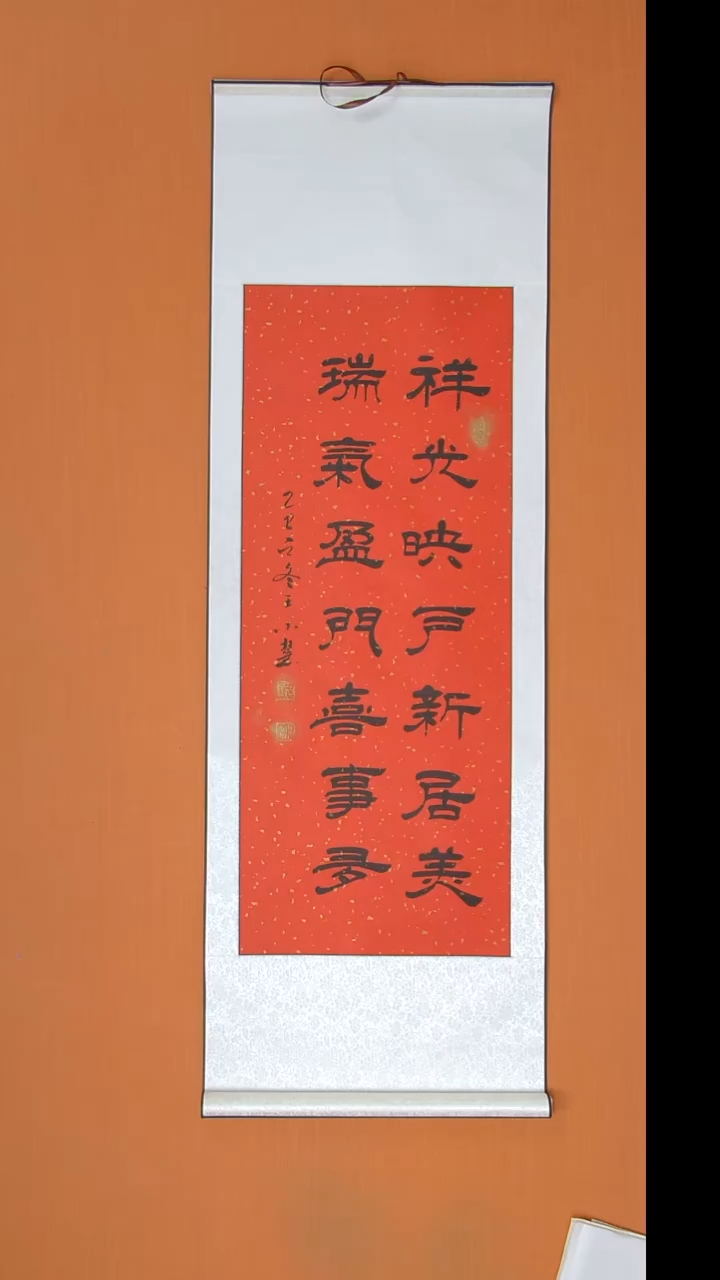 祥光映戶新居美
瑞氣盈門喜事多
乙巳之冬王小慧